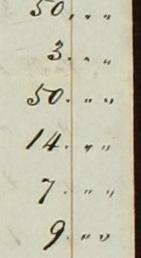 50. " "
3. " "
50. " "
14. " "
7. " "
9. " "